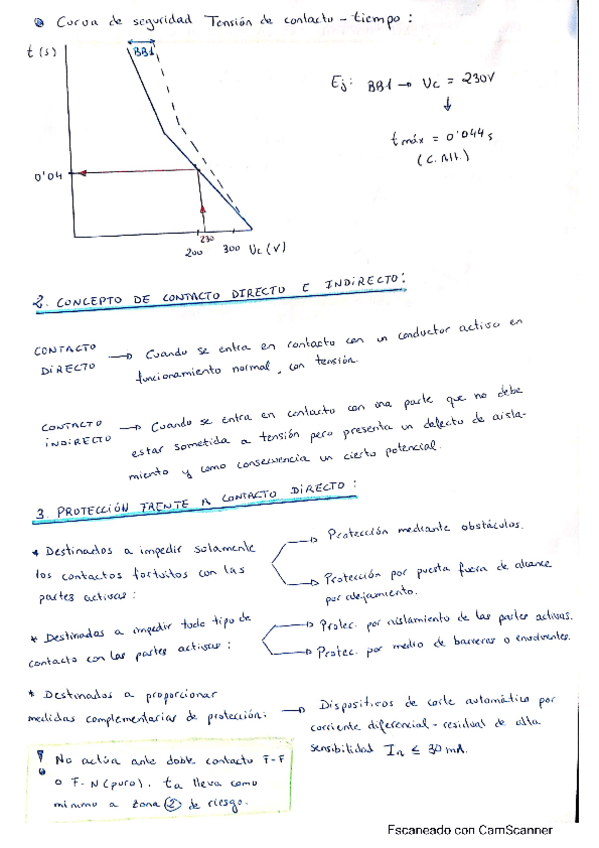 Curva de seguridad Tensión de contacto - tiempo :
t (s)
BB1
Ej: BB1 → Uc = 230V
↓
t máx = 0'044 s
(C. Alt.)
0'04
230
200 300 Uc (V)
2. CONCEPTO DE CONTACTO DIRECTO E INDIRECTO:
CONTACTO DIRECTO → Cuando se entra en contacto con un conductor activo en
funcionamiento normal, con tensión.
CONTACTO INDIRECTO → Cuando se entra en contacto con una parte que no debe
estar sometida a tensión pero presenta un defecto de aisla-
miento y como consecuencia un cierto potencial.
3. PROTECCIÓN FRENTE A CONTACTO DIRECTO :
* Destinados a impedir solamente
los contactos fortuitos con las
partes activas :
→ Protección mediante obstáculos.
→ Protección por puesta fuera de alcance
por alejamiento.
* Destinados a impedir todo tipo de
contacto con las partes activas :
→ Protec. por aislamiento de las partes activas.
→ Protec. por medio de barreras o envolventes.
* Destinados a proporcionar
medidas complementarias de protección. →
Dispositivos de corte automático por
corriente diferencial - residual de alta
sensibilidad In ≤ 30 mA.
! No actúa ante doble contacto F-F
o F-N (puro). Ta lleva como
mínimo a zona 2 de riesgo.
Escaneado con CamScanner